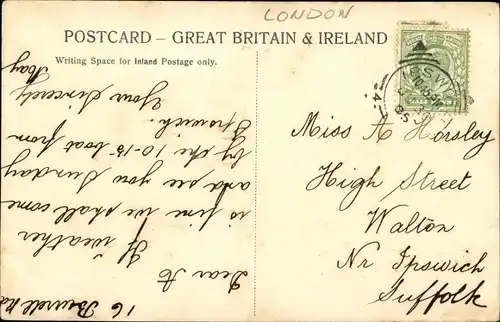 LONDON
POSTCARD – GREAT BRITAIN & IRELAND
Writing Space for Inland Postage only.
16 Burrell Rd
Dear A
If weather
is fine we shall come
and see you Sunday
by the 10-15 boat from
Ipswich.
Your Sincerely
May
Miss A Horsley
High Street
Walton
Nr Ipswich
Suffolk